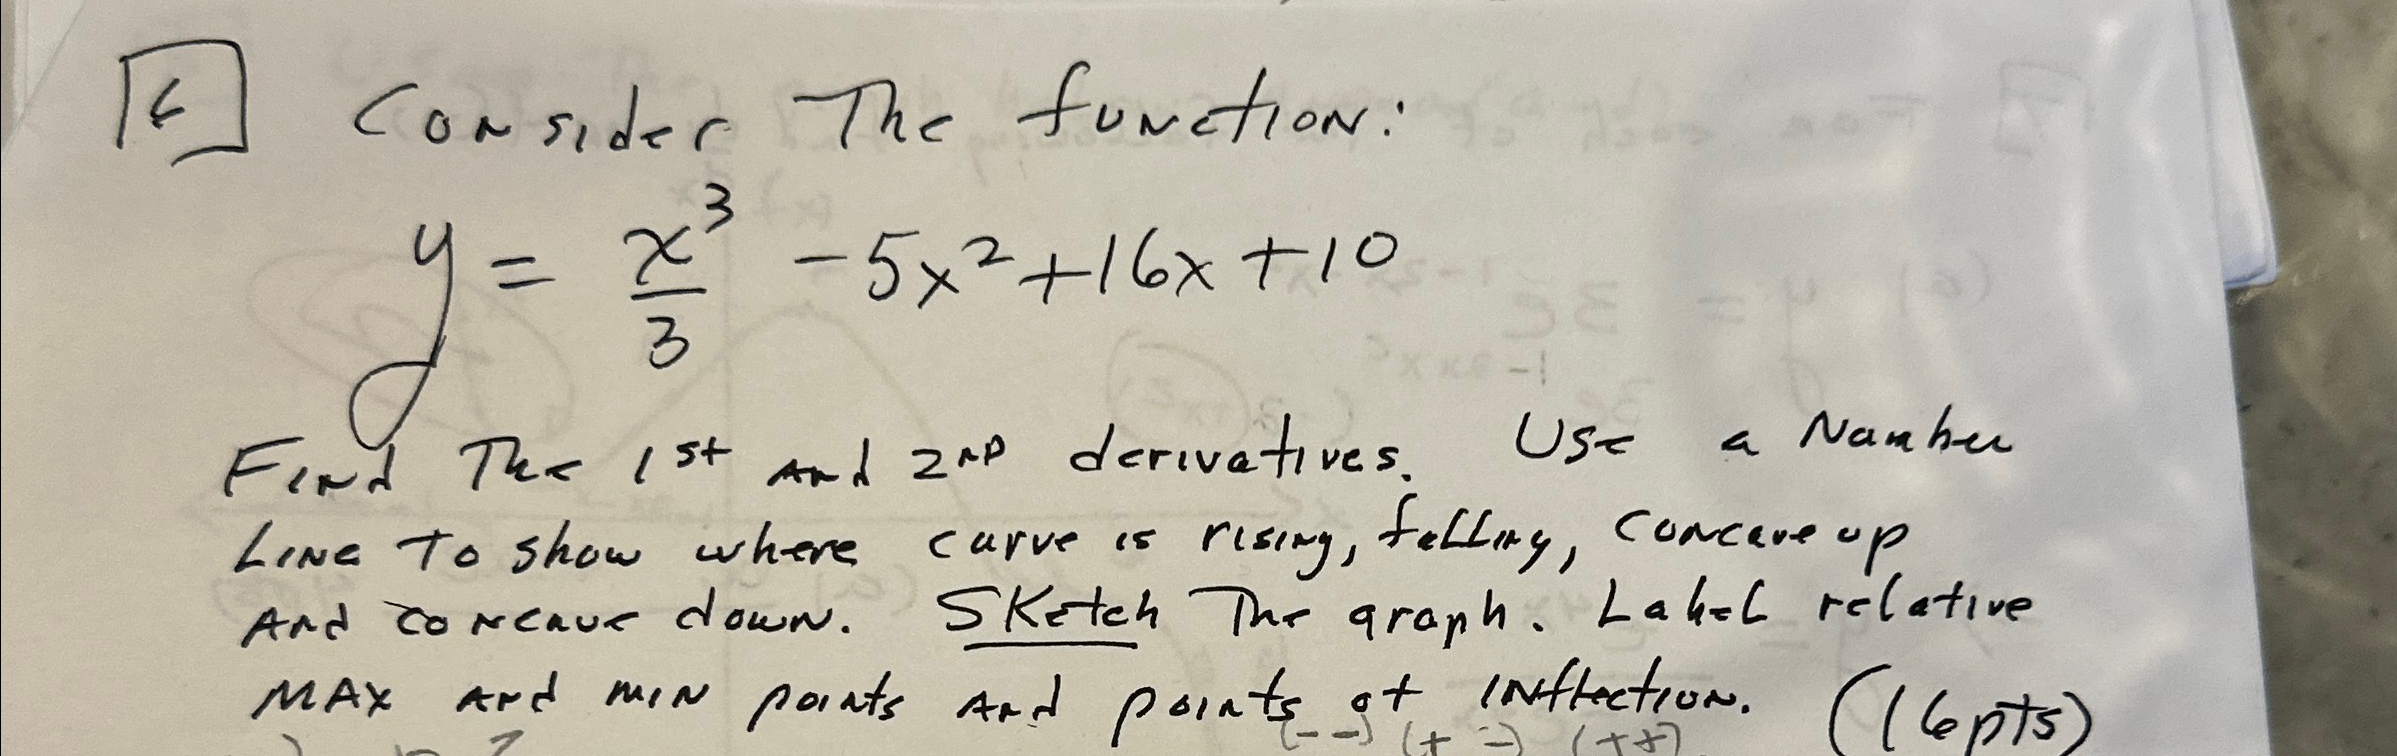 6 Consider The function:
y = x³/3 - 5x² + 16x + 10
Find The 1st And 2nd derivatives. Use a Number
Line To show where curve is rising, falling, concave up
And concave down. Sketch The graph. Label relative
MAX and MIN points And points of inflection. (16pts)
(--) (+-) (++)